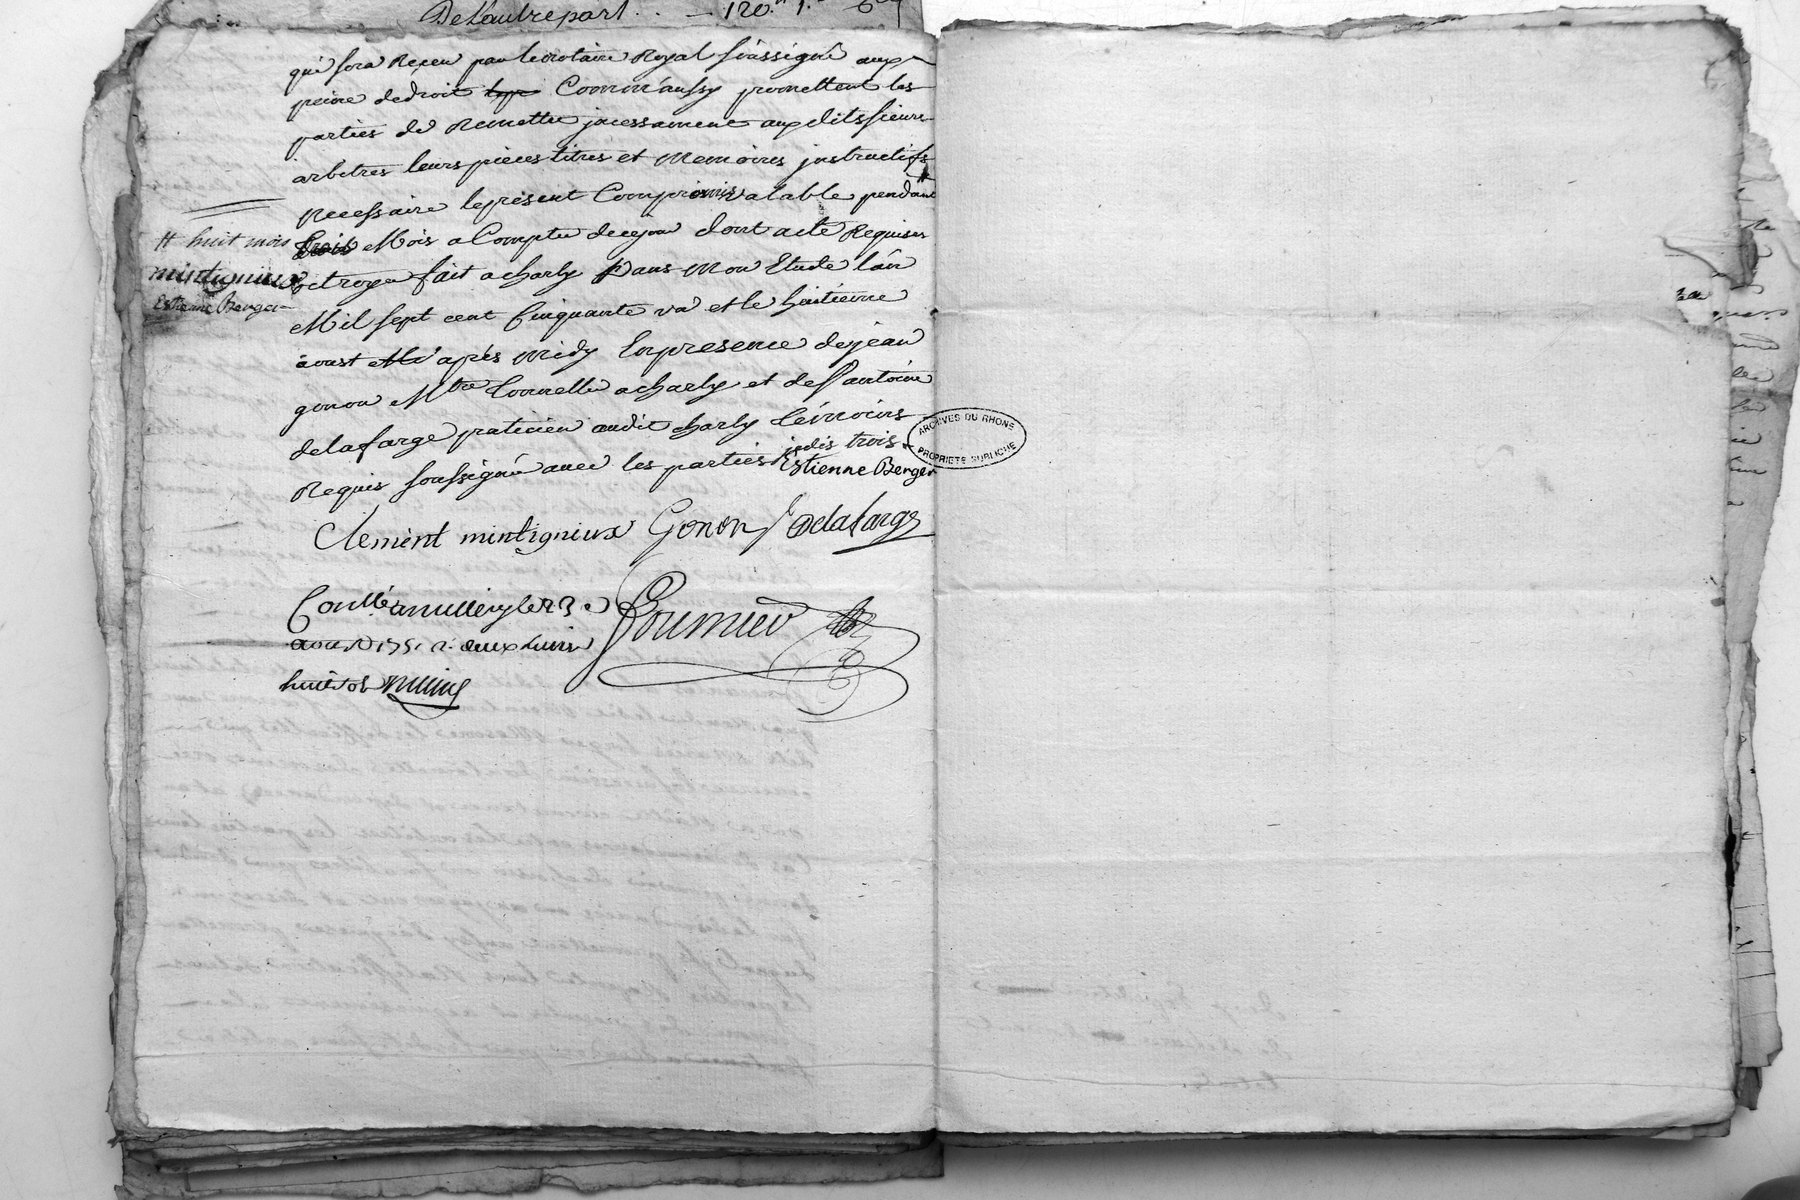 De Lautrepart . . — 120.
qui sera Receu par le notaire Royal soussigné aux
peine de droit Comm'aussy promettent les
parties de Remettre jncessamment aux dits sieurs
arbitres leurs pieces titres et Memoires jnstructifs
necessaire le present Compromis valable pendant
# huit mois
mintigniux
Estienne Berger
trois Mois a Compter de ce jour dont acte Requises
octroyé fait a charly Dans Mon Etude L'an
Mil sept cent Cinquante un et le huitieme
aoust apres midy En presence de jean
gonon Mtre Tonnellie a charly et de Sr antoine
delafarge praticien audit charly témoins
Requis soussigné avec les parties jndis trois
Estienne Berger
Clement mintigniux Gonon Delafarge
Conllé a millery le 23e
aoust 1751 r. deux livres
huit sols
Fournier
ARCHIVES DU RHONE
PROPRIETE PUBLIQUE